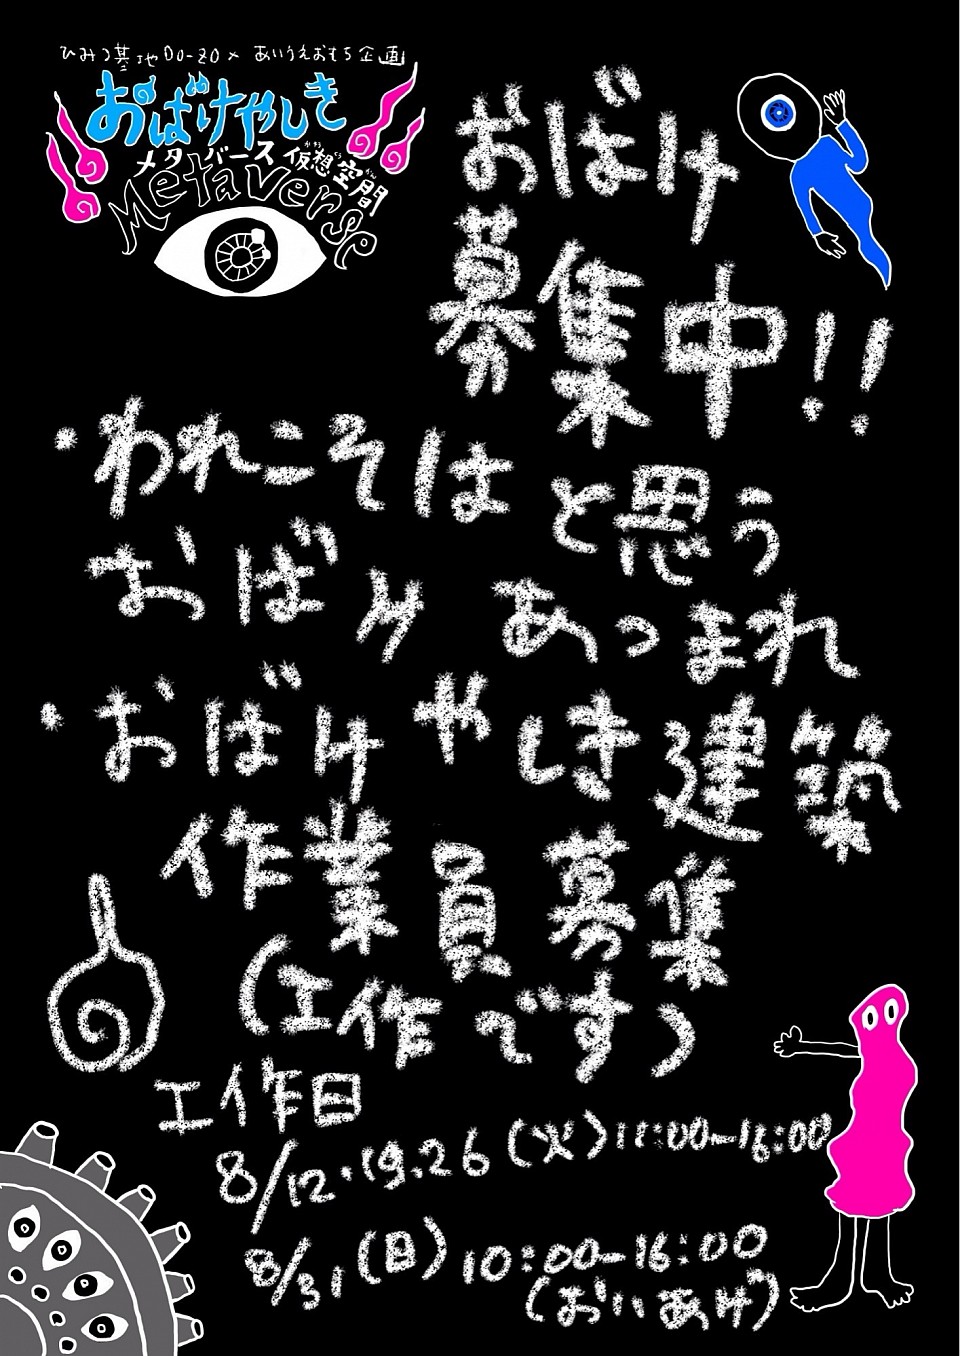 ひみつ基地DO-ZO × あいうえおもち企画
おばけやしき
メタバース仮想空間
かそうくうかん
Metaverse
おばけ
募集中!!
・われこそはと思う
おばけ あっまれ
・おばけやしき建築
作業員募集
(工作です)
工作日
8/12・19.26(火)11:00-16:00
8/31(日)10:00-16:00
(おいあげ)